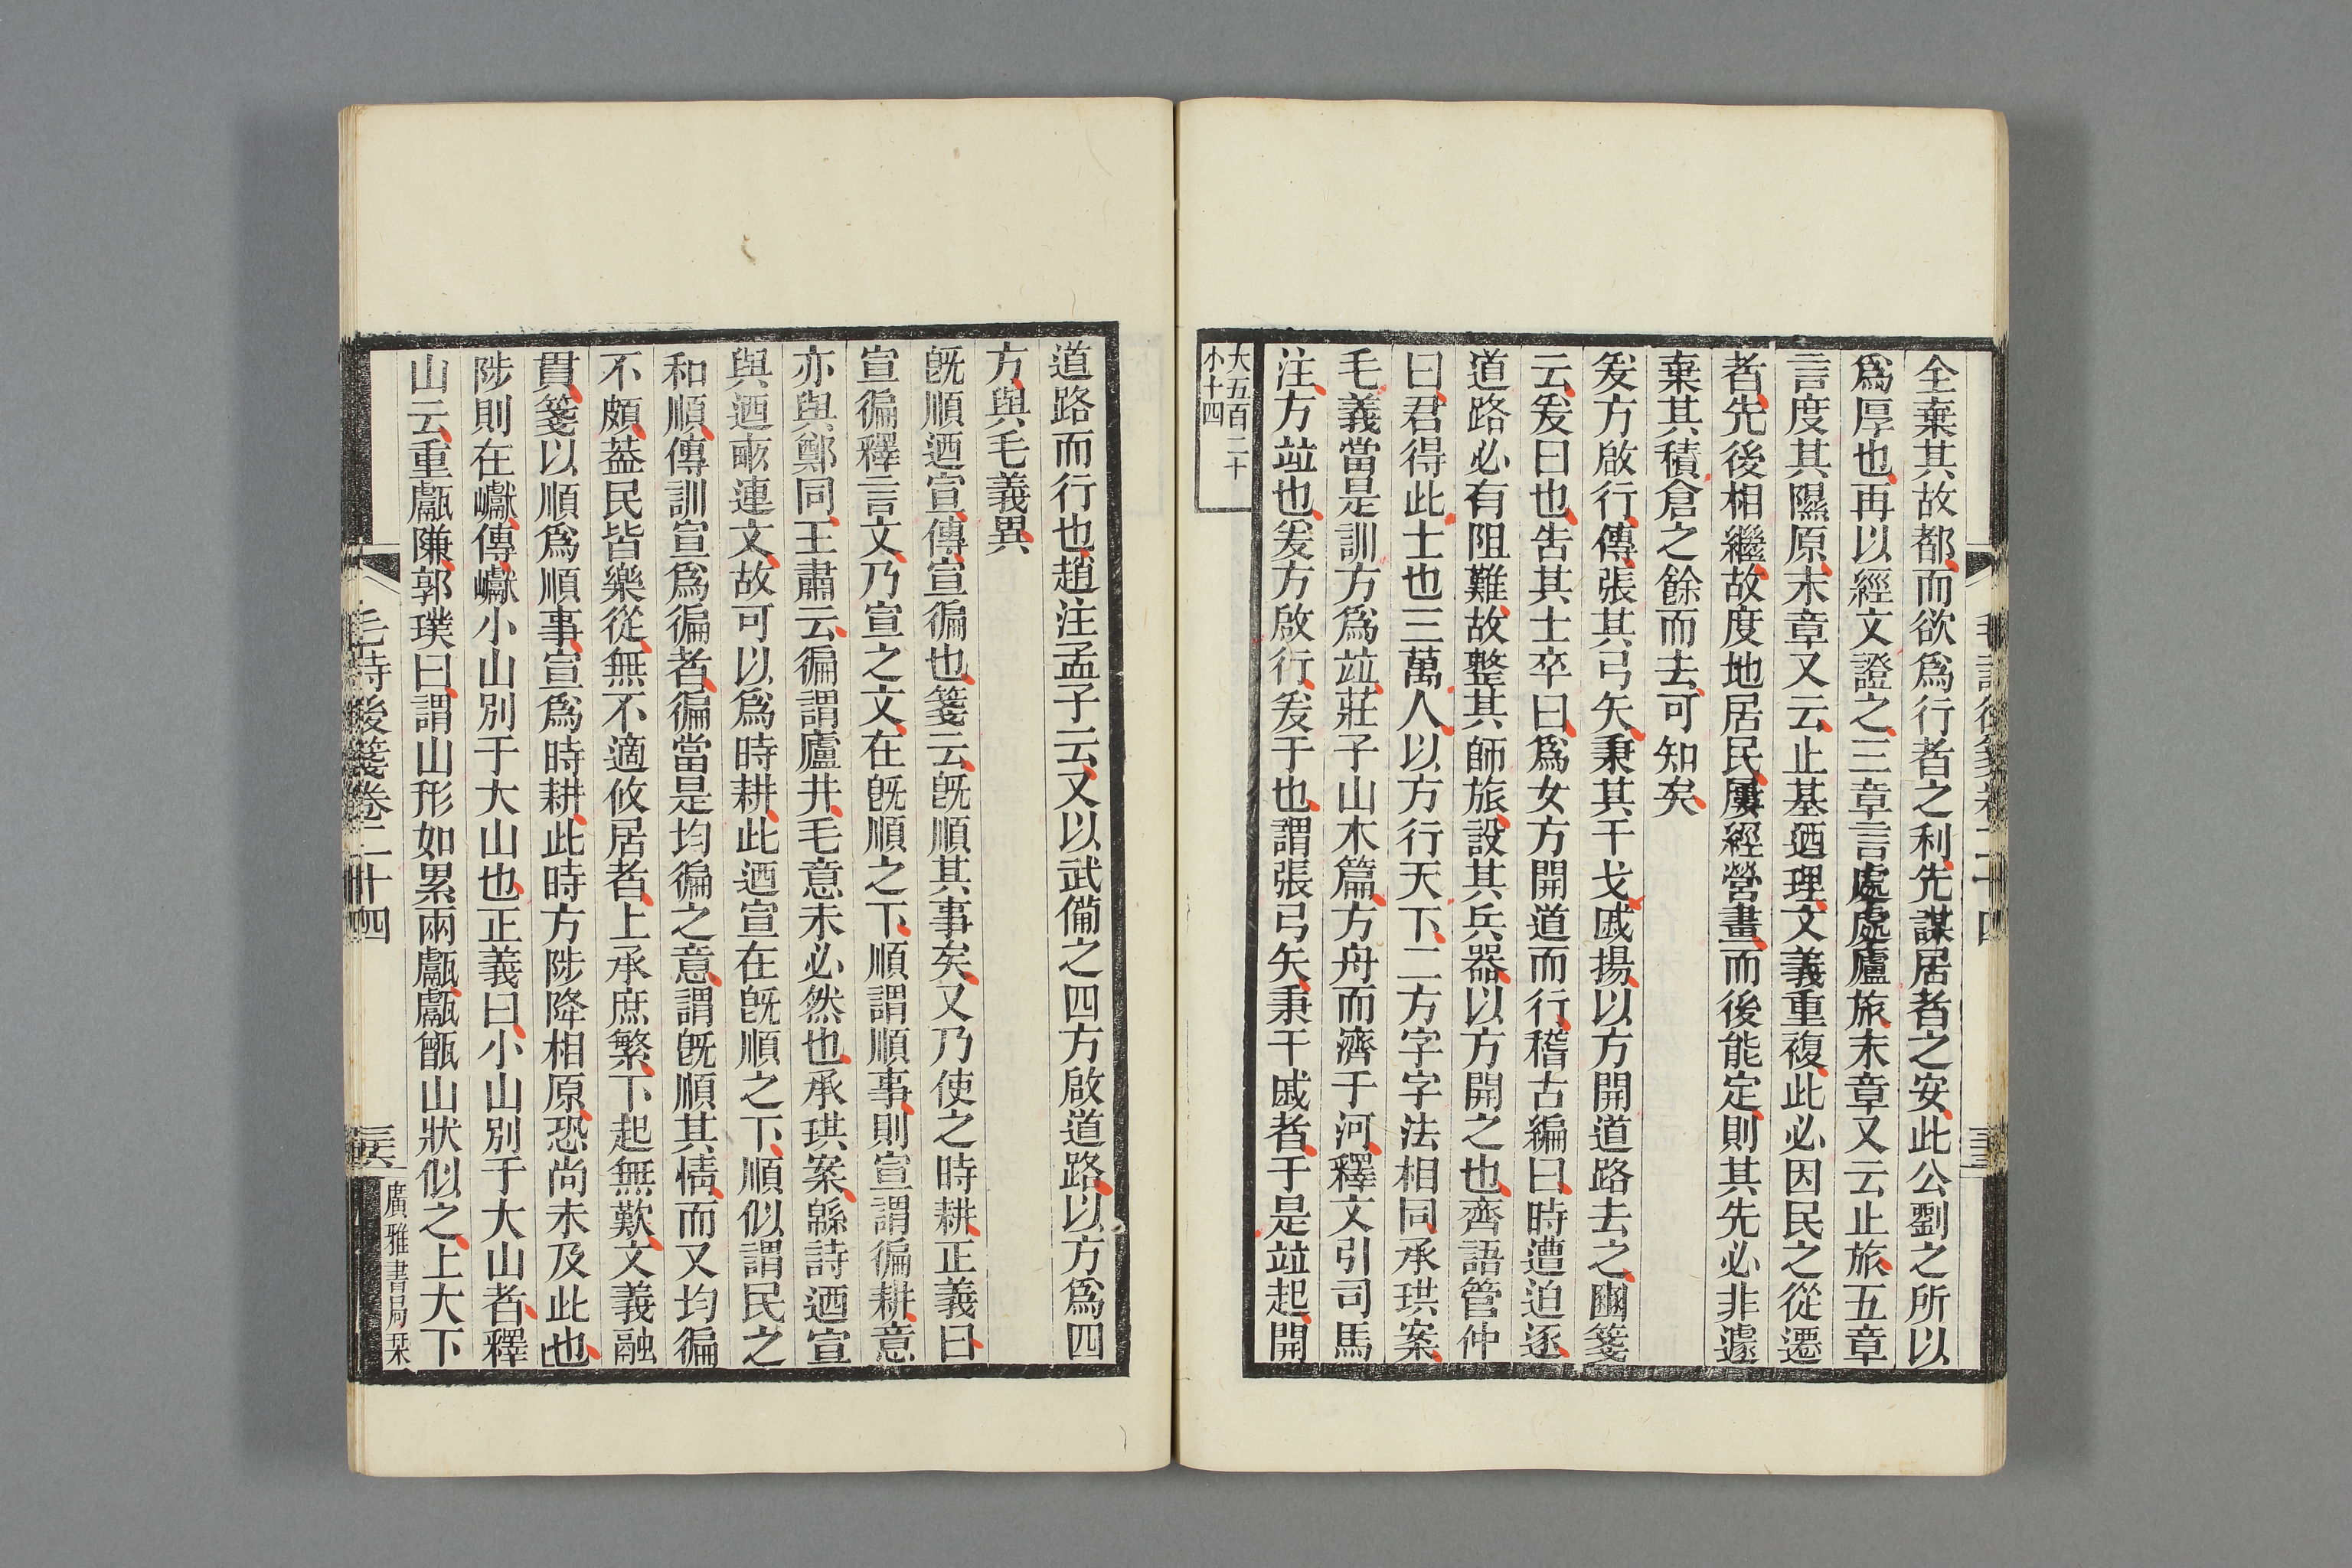 全棄其故都而欲爲行者之利先謀居者之安此公劉之所以
爲厚也再以經文證之三章言處處廬旅末章又云止旅五章
言度其隰原末章又云止基迺理文義重複此必因民之從遷
者先後相繼故度地居民屢經營畫而後能定則其先必非遽
棄其積倉之餘而去可知矣
爰方啟行傳張其弓矢秉其干戈戚揚以方開道路去之豳箋
云爰曰也告其士卒曰爲女方開道而行稽古編曰時遭迫逐
道路必有阻難故整其師旅設其兵器以方開之也齊語管仲
曰君得此士也三萬人以方行天下二方字字法相同承珙案
毛義當是訓方爲竝莊子山木篇方舟而濟于河釋文引司馬
注方竝也爰方啟行爰于也謂張弓矢秉干戚者于是竝起開
大五百二十
小十四
道路而行也趙注孟子云又以武備之四方啟道路以方爲四
方與毛義異
既順迺宣傳宣徧也箋云既順其事矣又乃使之時耕正義曰
宣徧釋言文乃宣之文在既順之下順謂順事則宣謂徧耕意
亦與鄭同王肅云徧謂廬井毛意未必然也承珙案緜詩迺宣
與迺畝連文故可以爲時耕此迺宣在既順之下順似謂民之
和順傳訓宣爲徧者徧當是均徧之意謂既順其情而又均徧
不頗葢民皆樂從無不適攸居者上承庶繁下起無歎文義融
貫箋以順爲順事宣爲時耕此時方陟降相原恐尚未及此也
陟則在巘傳巘小山別于大山也正義曰小山別于大山者釋
山云重甗隒郭璞曰謂山形如累兩甗甗甑山狀似之上大下
毛詩後箋卷二十四
廣雅書局栞